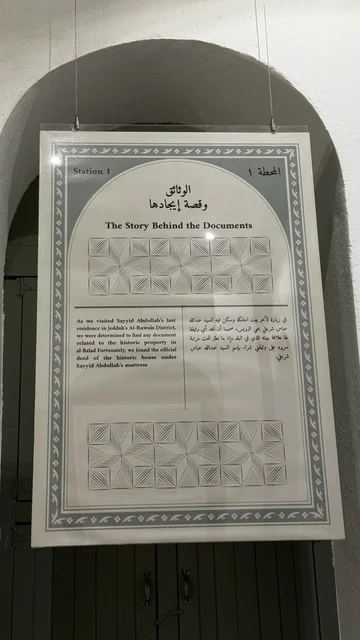 Station 1
المحطة ١
الوثائق
وقصة إيجادها
The Story Behind the Documents
As we visited Sayyid Abdullah's last
residence in Jeddah's Al-Ruwais District,
we were determined to find any document
related to the historic property in
al-Balad Fortunately, we found the official
deed of the historic house under
Sayyid Abdullah's mattress
في زيارة لآخر بيت امتلكه وسكن فيه السيد عبدالله
عباس شربتلي بحي الرويس، صممنا أن نجد أي وثيقة
لها علاقة ببيته الذي في البلد وإذ بنا نعثر تحت مرتبة
سريره على وثيقتي شراء باسم السيد عبدالله عباس
شربتلي